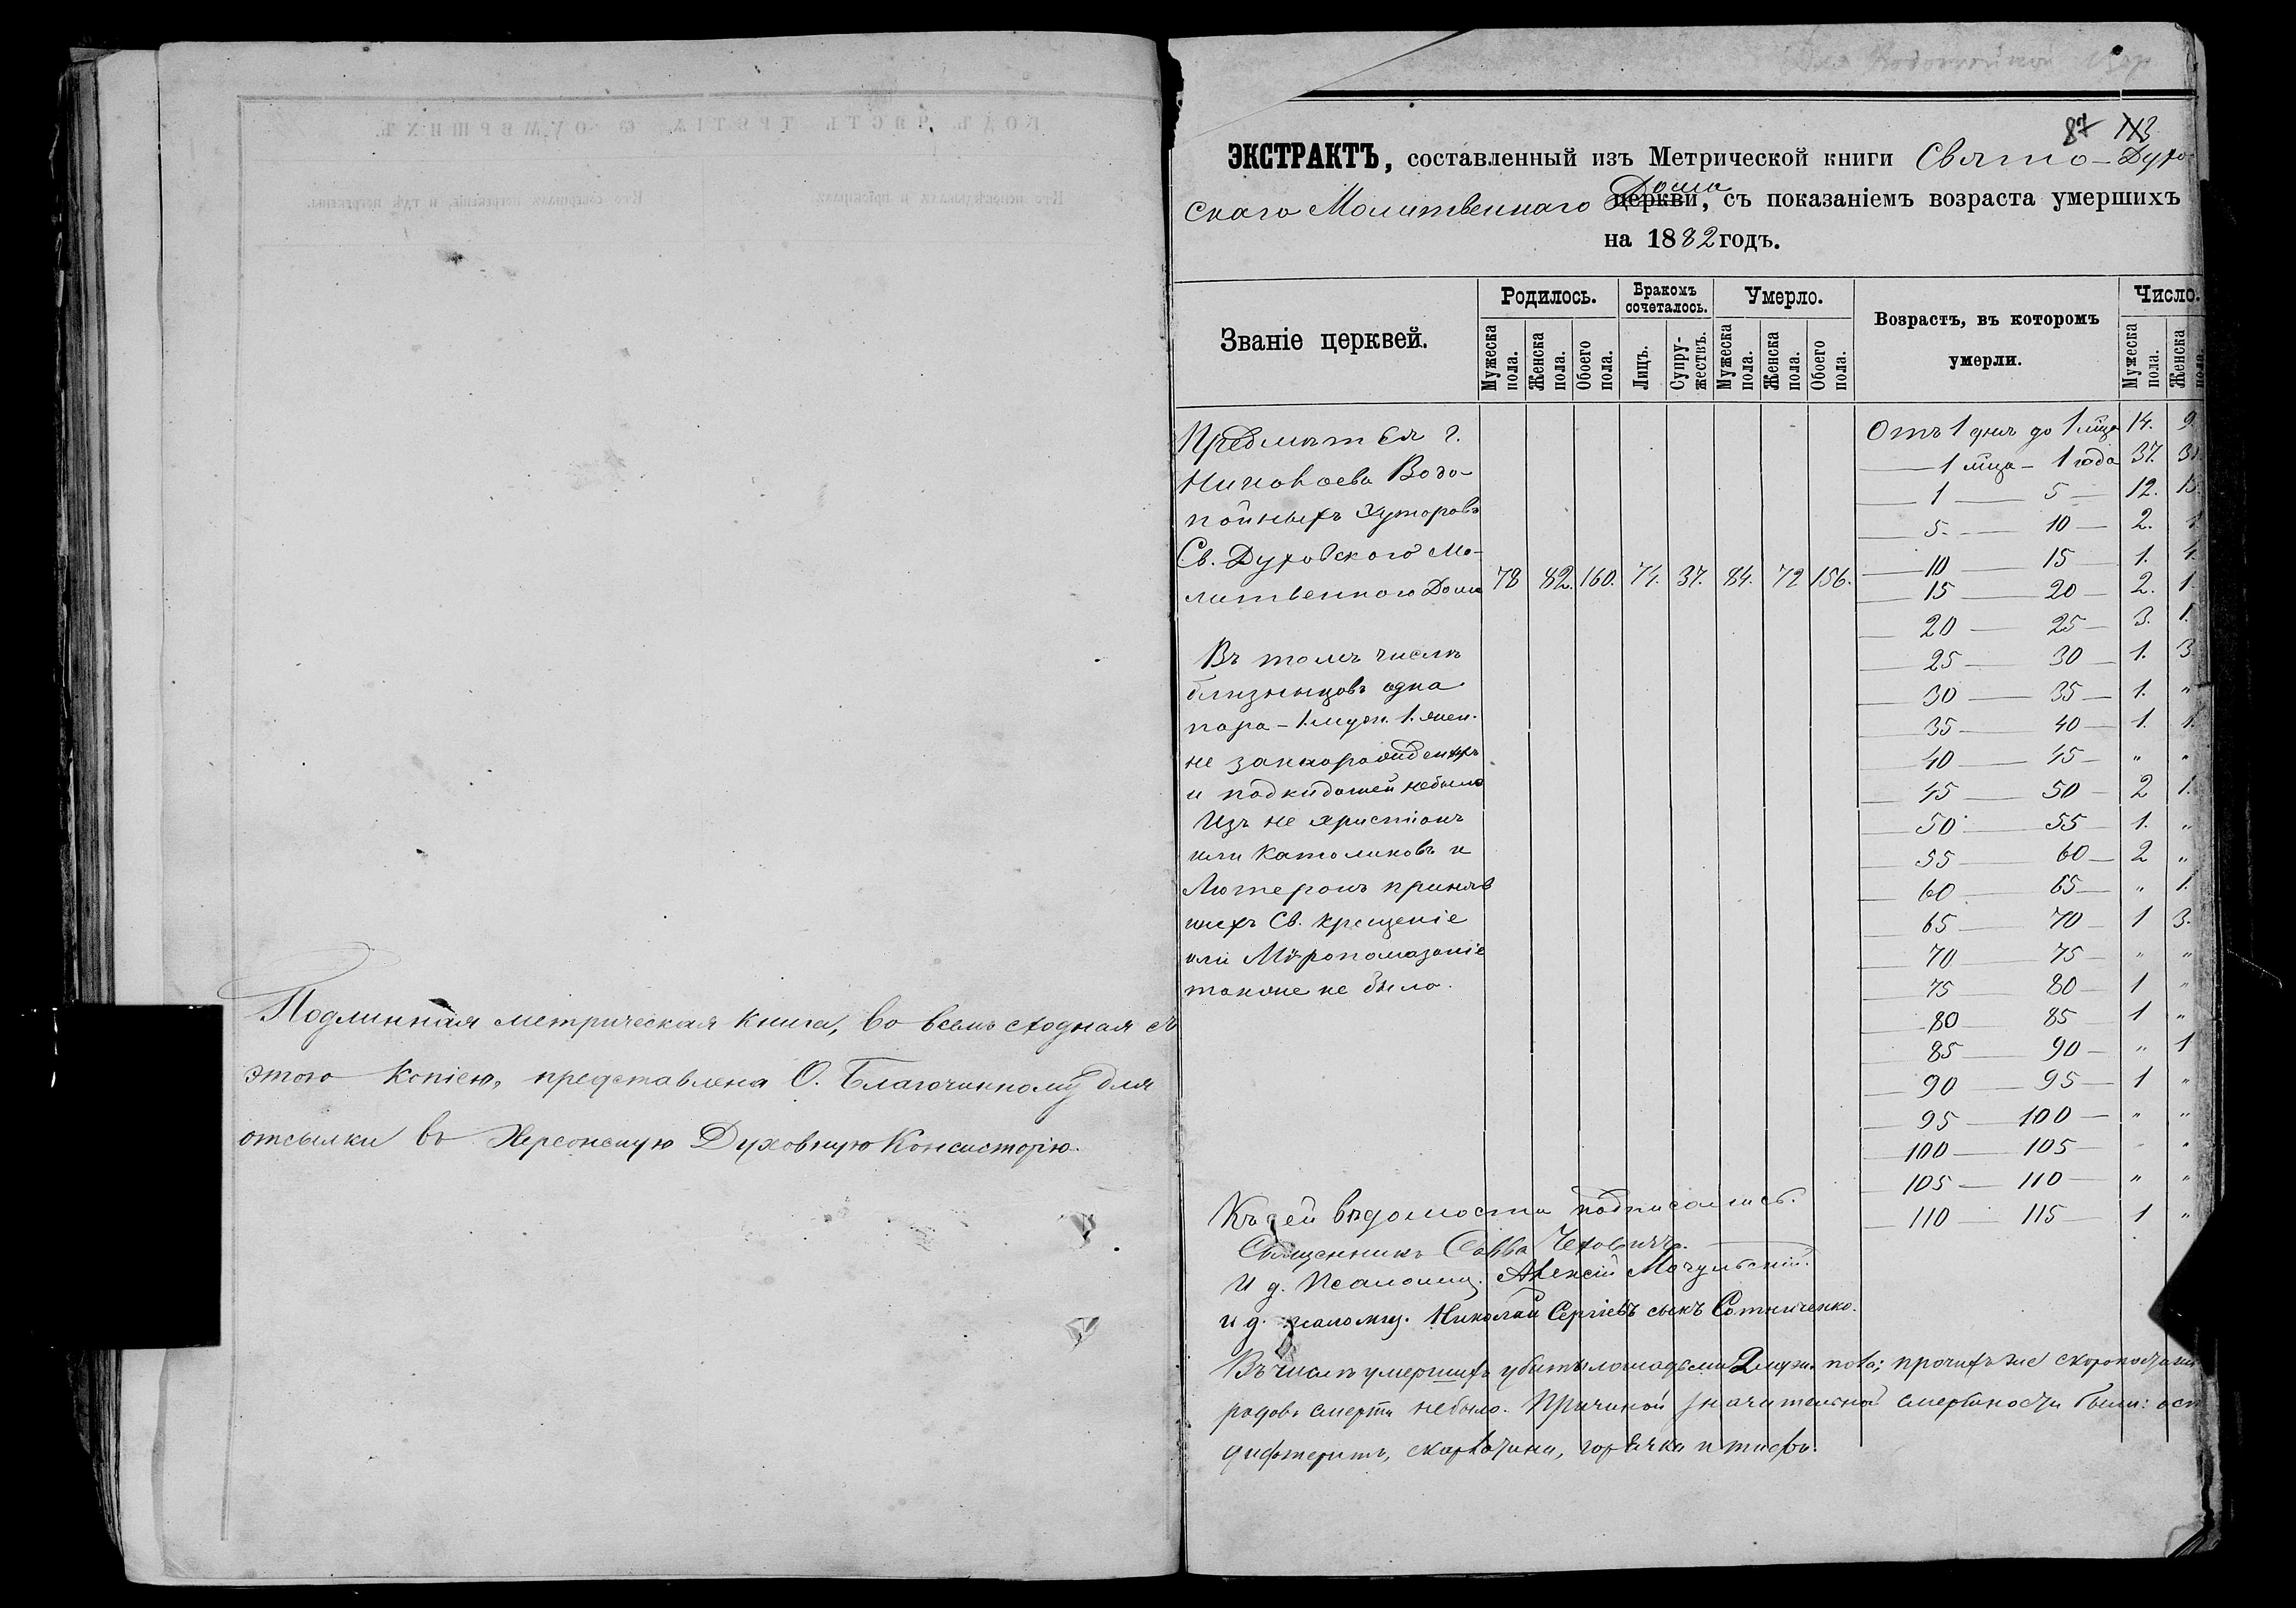 Подлинная метрическая книга, во всемъ сходная съ
этою копіею, представлена О. Благочинному для
отсылки въ Херсонскую Духовную Консисторію.
87 113
ЭКСТРАКТЪ, составленный изъ Метрической книги Свято-Духо-
скаго Молитвеннаго церкви, Дома съ показаніемъ возраста умершихъ
на 1882 годъ.
Званіе церквей.
Родилось.
Бракомъ сочеталось.
Умерло.
Возрастъ, въ которомъ умерли.
Число.
Мужеска пола.
Женска пола.
Обоего пола.
Лицъ.
Супружествъ.
Мужеска пола.
Женска пола.
Обоего пола.
Мужеска пола.
Женска пола.
Предмѣстья г.
Николаева Водо-
пойныхъ Хуторовъ
Св. Духовского Мо-
литвенного Дома 78 82. 160. 74. 37. 84. 72 156.
Въ томъ числѣ
близнецовъ одна
пара - 1. муж. 1. жен.
не
и подкидышей небыло
Изъ не христіанъ
или Католиковъ и
Лютеранъ принявъ
шихъ Св. Крещеніе
или Мѵропомазаніе
также не было.
Отъ 1 дня до 1 мѣца 14. 9.
— 1 мѣца - 1 года 37.
— 1 — 5 — 12.
— 5. — 10 — 2.
— 10 15 — 1.
— 15 — 20 — 2. 1.
— 20 — 25 — 3. 1.
— 25 — 30 — 1. 3
— 30 — 35 — 1. "
— 35 — 40 — 1. 1.
— 40 — 45 — " "
— 45 — 50 — 2 1.
— 50 — 55 — 1. "
— 55 — 60 — 2 "
— 60 — 65 — " 1.
— 65 — 70 — 1 3.
— 70 — 75 — " "
— 75 — 80 — 1 "
— 80 — 85 — 1 "
— 85 — 90 — " 1
— 90 — 95 — 1 "
— 95 — 100 — " "
— 100 — 105 — " "
— 105 — 110 — " "
— 110 — 115 — 1 "
Къ сей вѣдомости подписались.
Священникъ Савва
И д. Псаломщ. Алексій Мочульскій.
и д. псаломщ. Николай Сергіевъ сынъ Сотниченко.
Въ числѣ умершихъ убиты лошадьми 2 муж. пола; прочихъ же
родовъ смерти небыло. Причиной значительной смертности были:
дифтеритъ, скарлатина, горячка и тифъ.